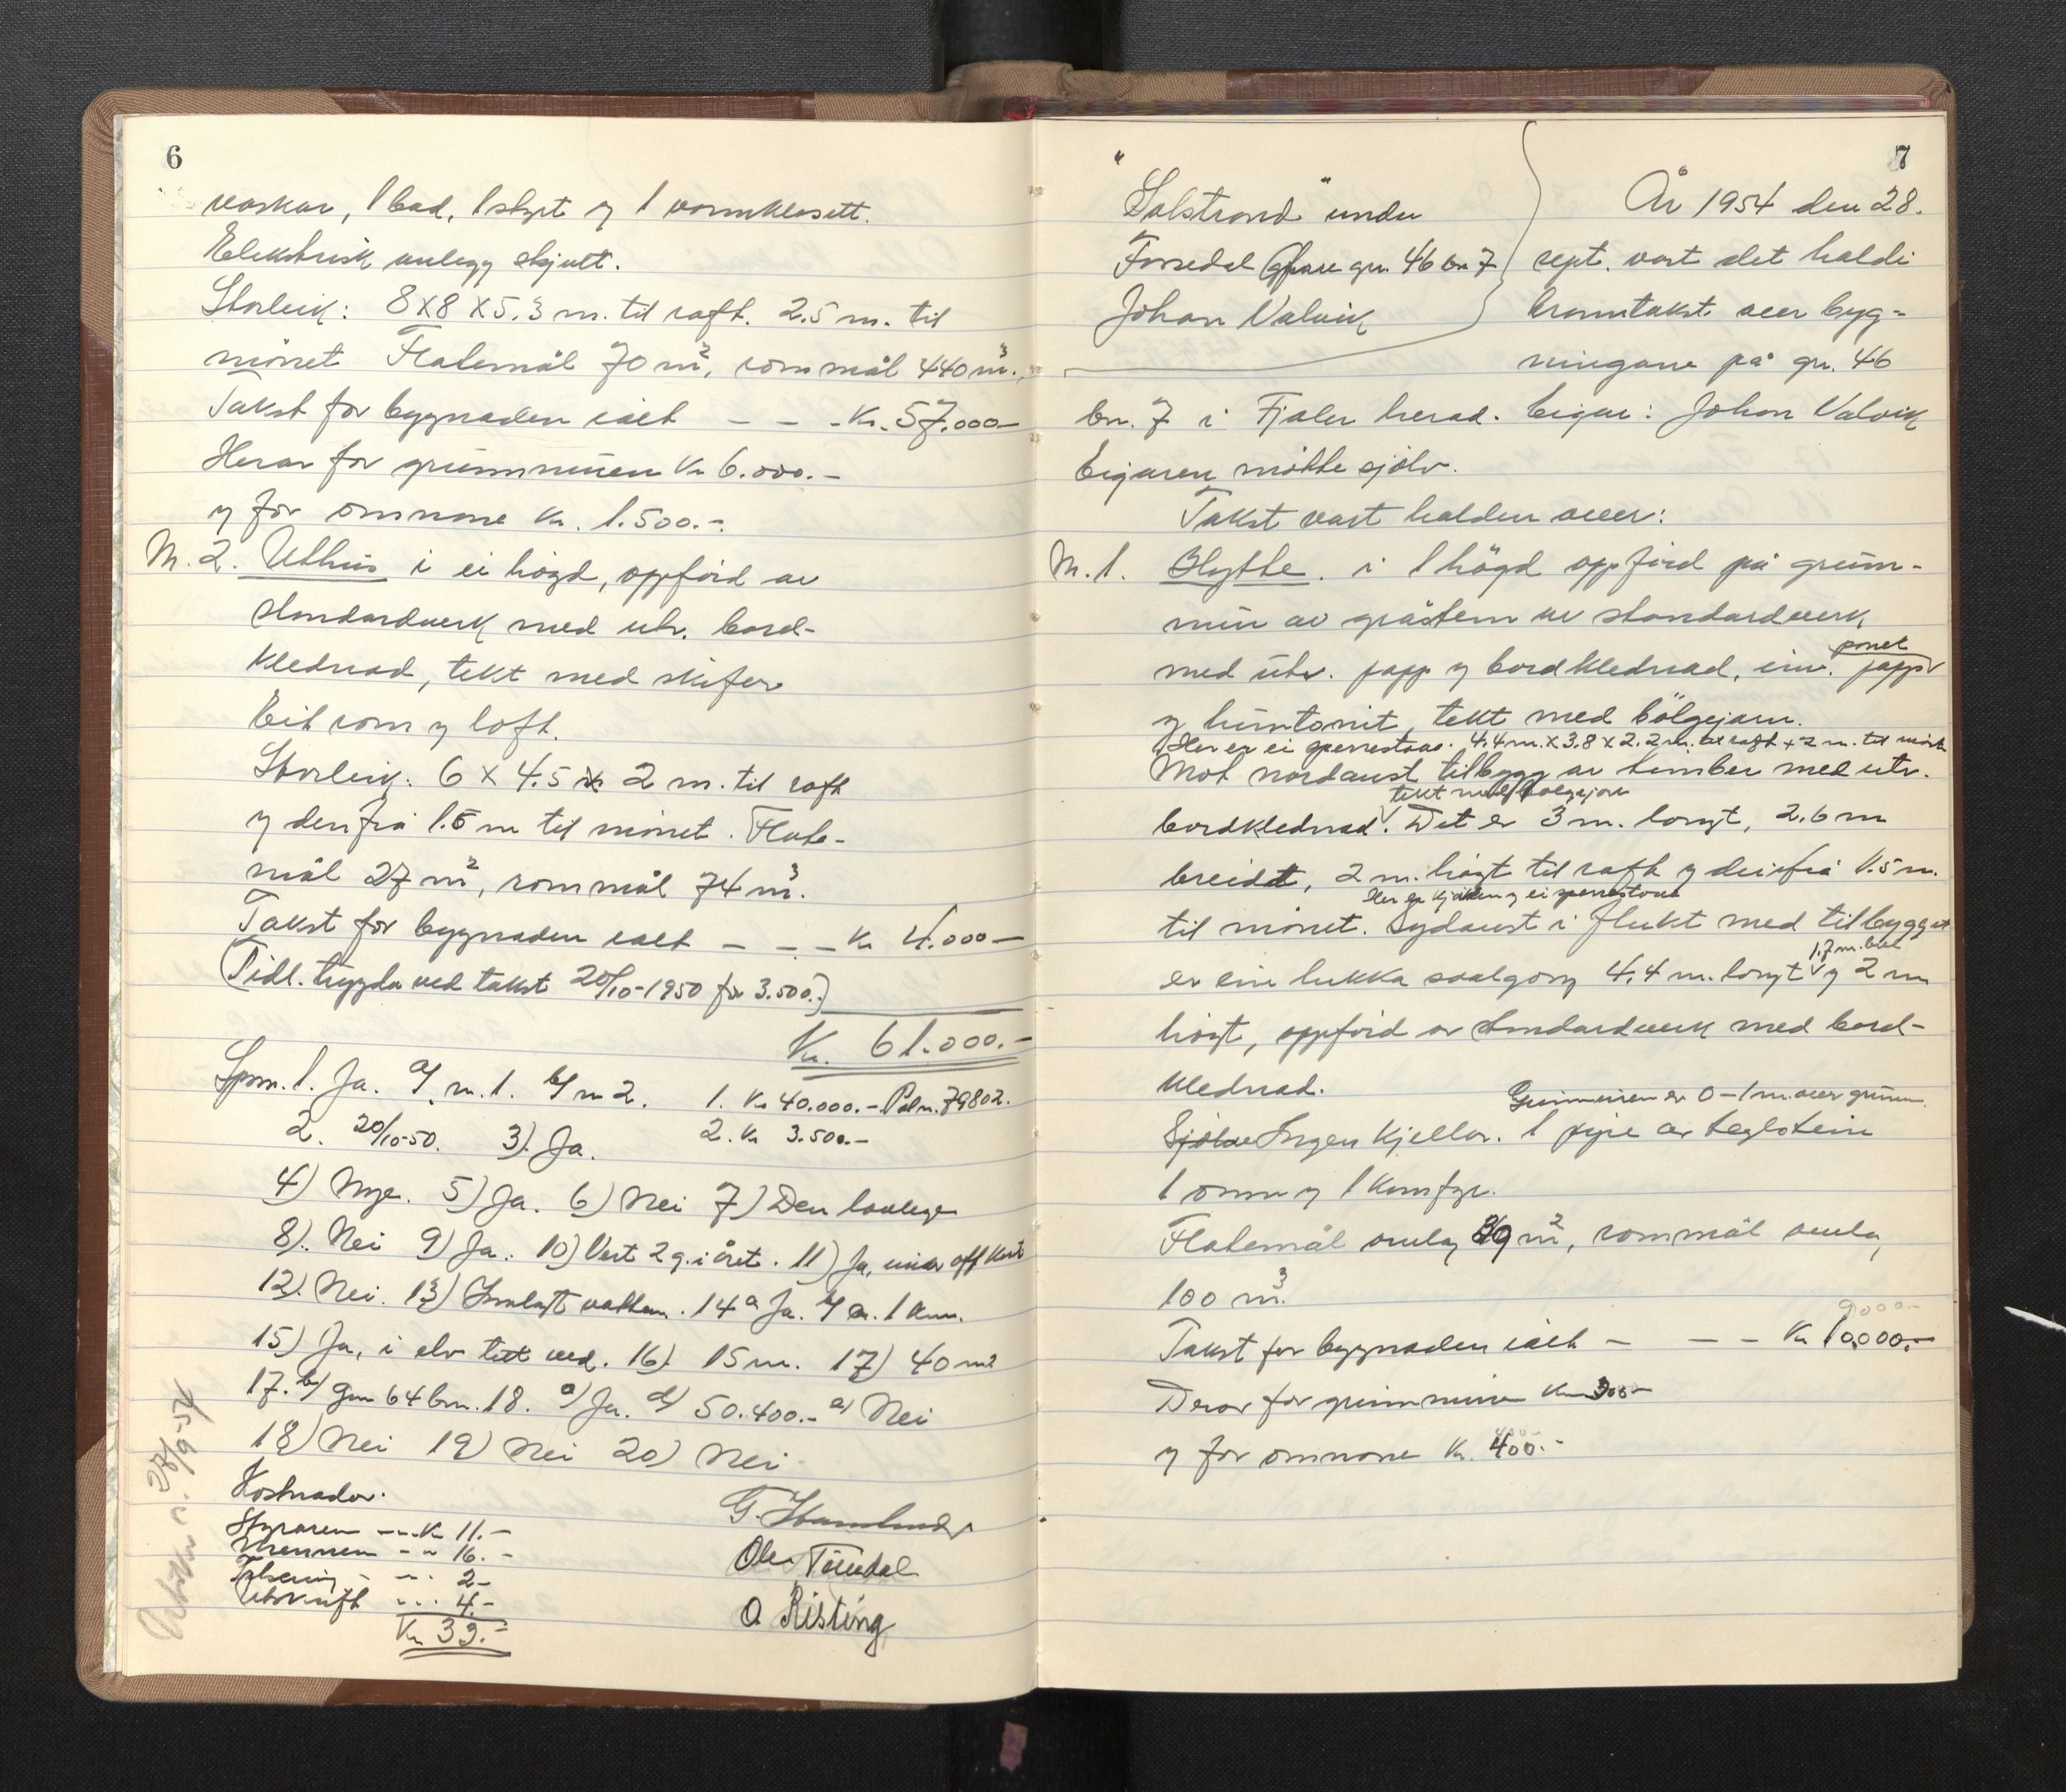 6
vaskar, 1 bad, 1 skyt og 1 vannklosett.
Elektrisk anlegg skjult.
Storleik: 8x8x5.3 m. til raft. 2.5 m. til
mönet Flatemål 70 m², rommål 440 m³.
Takst for bygnaden ialt - - - Kr. 57.000-
Herav for grunnmuren Kr 6.000.-
og for omnane Kr. 1.500.-
M. 2. Uthus i ei högd, oppförd av
standardverk med utv. bord-
klednad, tekt med skifer
Eit rom og loft.
Storleik: 6 x 4.5 x 2 m. til raft
og derifrå 1.5 m til mönet. Flate-
mål 27 m², rommål 74 m³.
Takst for bygnaden ialt - - - Kr 4.000-
(Tidl. trygda ved takst 20/10-1950 for 3.500.-)
Kr. 61.000.-
Spm. 1. Ja. a/ m. 1. b/ m 2. 1. Kr 40.000.- Pol n. 79802.
2. 20/10-50. 3). Ja. 2. Kr 3.500.-
4) Mye. 5) Ja. 6) Nei 7) Den lovlege
8). Nei 9) Ja. 10) Vert 2 g. i året. 11) Ja, under off kont
12). Nei. 13) Innlagt vatten. 14 a Ja. b/ ca. 1 km.
15) Ja, i elv tett ved. 16). 15 m. 17) 40 m²
17. b/ Gnr 64 bnr. 18. c) Ja. d) 50.400.- e) Nei
18) Nei 19) Nei 20) Nei
Kostnader.
Styraren - - Kr 11.-
Mennene - - 16.-
- - 2-
Utskrift - - - 4.-
Kr 33.-
G.
Ole
O. Risting
28/9-54
7
"Solstrand" under
Forsedal gnr. 46 bn 7
Johan Valvik
År 1954 den 28.
sept. vart det haldi
branntakst over byg-
ningane på gn. 46
bn. 7 i Fjaler herad. Eigar: Johan Valvik
Eigaren mötte sjölv.
Takst vart halden over:
M. 1. Hytte. i 1 högd oppförd på grunn-
mur av gråstein av standardverk
med utv. papp og bordklednad, inv. papp
panel
og huntonit, tekt med bölgejarn.
Her er ei sperrestove. 4.4 m. x 3.8 x 2.2 m. til raft + 2 m. til mönet
Mot nordaust tilbygg av tømber med utv.
tekt med bölgejarn
bordklednad. Det er 3 m. langt, 2.6 m
breidt, 2 m. högt til raft og derifrå 1.5 m.
Her er kjöken og ei sperrestove
til mönet. Sydaust i flukt med tilbygget
1,7 m. breit
er ein lukka svalgang 4,4 m. langt og 2 m
högt, oppförd av standardverk med bord-
klednad.
Grunnmuren er 0-1 m. over grunn.
Sjölve Ingen kjellar. 1 pipe av teglstein
1 omn og 1 komfyr.
Flatemål omlag 39 m², rommål omlag
100 m³.
9000-
Takst for bygnaden ialt - - - Kr 10.000.-
Derav for grunnmuren Kr 300-
og for omnane Kr. 400.-